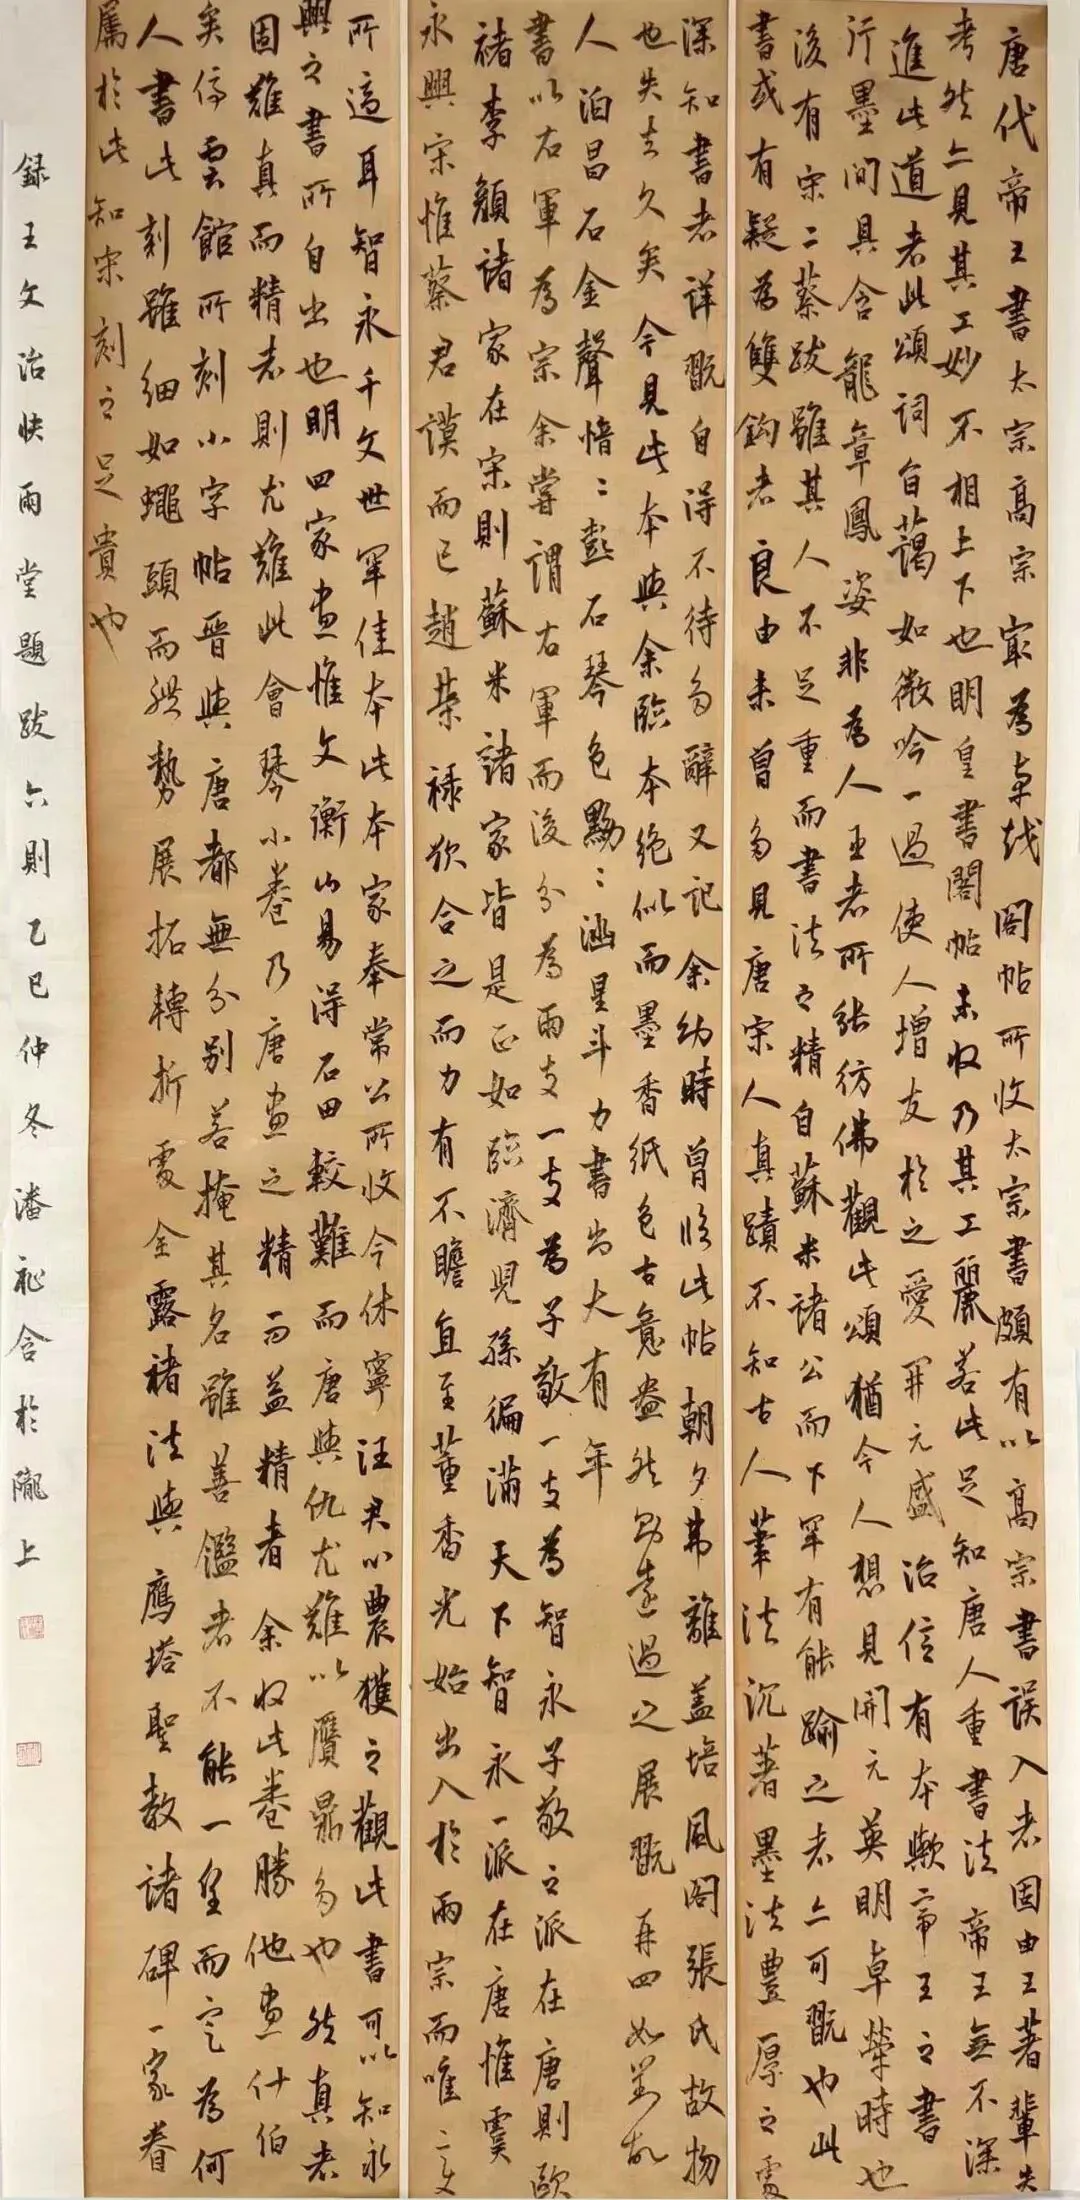 唐代帝王書太宗高宗最為卓越閣帖所收太宗書頗有以高宗書誤入者固由王著輩失
考然亦見其工妙不相上下也明皇書閣帖未收乃其工麗若此足知唐人重書法帝王無不深
進此道者此頌詞旨藹如微吟一過使人增友於之愛開元盛治信有本歟帝王之書
行墨間具含龍章鳳姿非為人王者所能彷彿觀此頌猶令人想見開元英明卓犖時也
後有宋二蔡跋雖其人不足重而書法之精自蘇米諸公而下罕有能踰之者亦可翫也此
書或有疑為雙鉤者良由未曾多見唐宋人真蹟不知古人筆法沉著墨法豐厚之處
深知書者詳翫自得不待多辭又記余幼時曾臨此帖朝夕弗離蓋培風閣張氏故物
也失去久矣今見此本與余臨本絕似而墨香紙色古意盎然勁遠過之展翫再四如對故
人泊昌石金聲愔〻彭石琴色黝〻涵星斗力書尚大有年
書以右軍為宗余嘗謂右軍而後分為兩支一支為子敬一支為智永子敬之派在唐則歐
褚李顏諸家在宋則蘇米諸家皆是正如臨濟兒孫徧滿天下智永一派在唐惟虞
永興宋惟蔡君謨而已趙榮祿欲合之而力有不瞻直至董香光始出入於兩宗而唯二文
所適耳智永千文世罕佳本此本家奉常公所收今休寧汪君心農獲之觀此書可以知永
興之書所自出也明四家畫惟文衡山易得石田較難而唐與仇尤難以贋鼎多也然真者
固難真而精者則尤難此會琴小卷乃唐畫之精而益精者余收此卷勝他畫什伯
矣停雲館所刻小字帖晉與唐都無分別若掩其名雖善鑑者不能一望而定為何
人書此刻雖細如蠅頭而體勢展拓轉折處全露褚法與鴈塔聖教諸碑一家眷
屬於此知宋刻之足貴也
錄王文治快雨堂題跋六則乙巳仲冬潘祕含於隴上